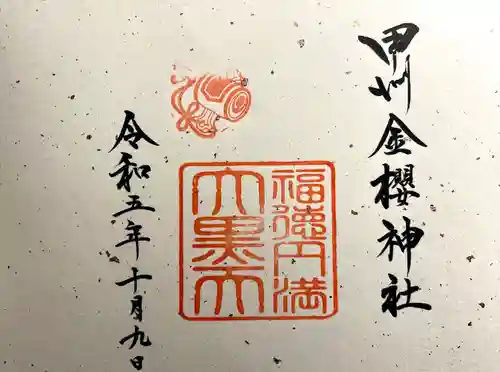 甲州金櫻神社
福徳円満
大黒天
令和五年十月九日